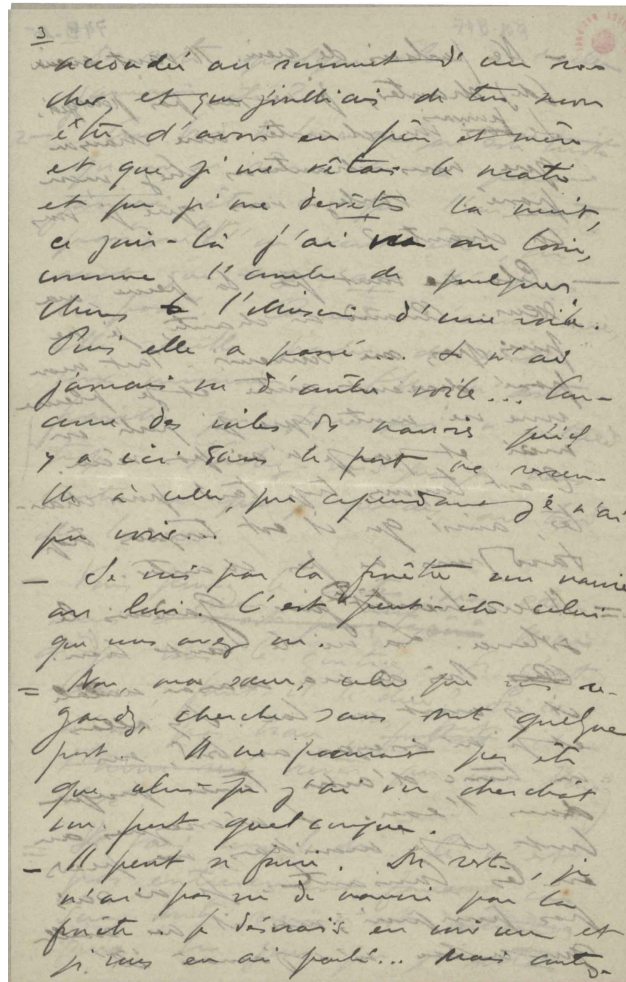 3
accoudée au sommet d'un ro-
cher, et que j'oubliais de tout mon
être d'avoir eu père et mère
et que je me vêtais le matin
et que je me dévêts la nuit,
ce jour-là j'ai vu au loin,
comme l'ombre de quelque
chose l' d'une voile.
Puis elle a passé... Je n'ai
jamais vu d'autre voile... Au-
cune des voiles des navires qu'il
y a ici dans le port ne ressem-
ble à celle, que cependant je n'ai
pu voir...
— Je vis par la fenêtre un navire
au loin. C'est peut-être celui
que vous avez vu.
= Non, ma sœur, celui que vous re-
gardez, cherche sans doute quelque
port. Il ne pourrait pas être
que celui que j'ai vu cherchât
un port quelconque.
— Il peut se faire. Du reste, je
n'ai pas vu de navire par la
fenêtre. Je désirais en voir un et
je vous en ai parlé... Mais